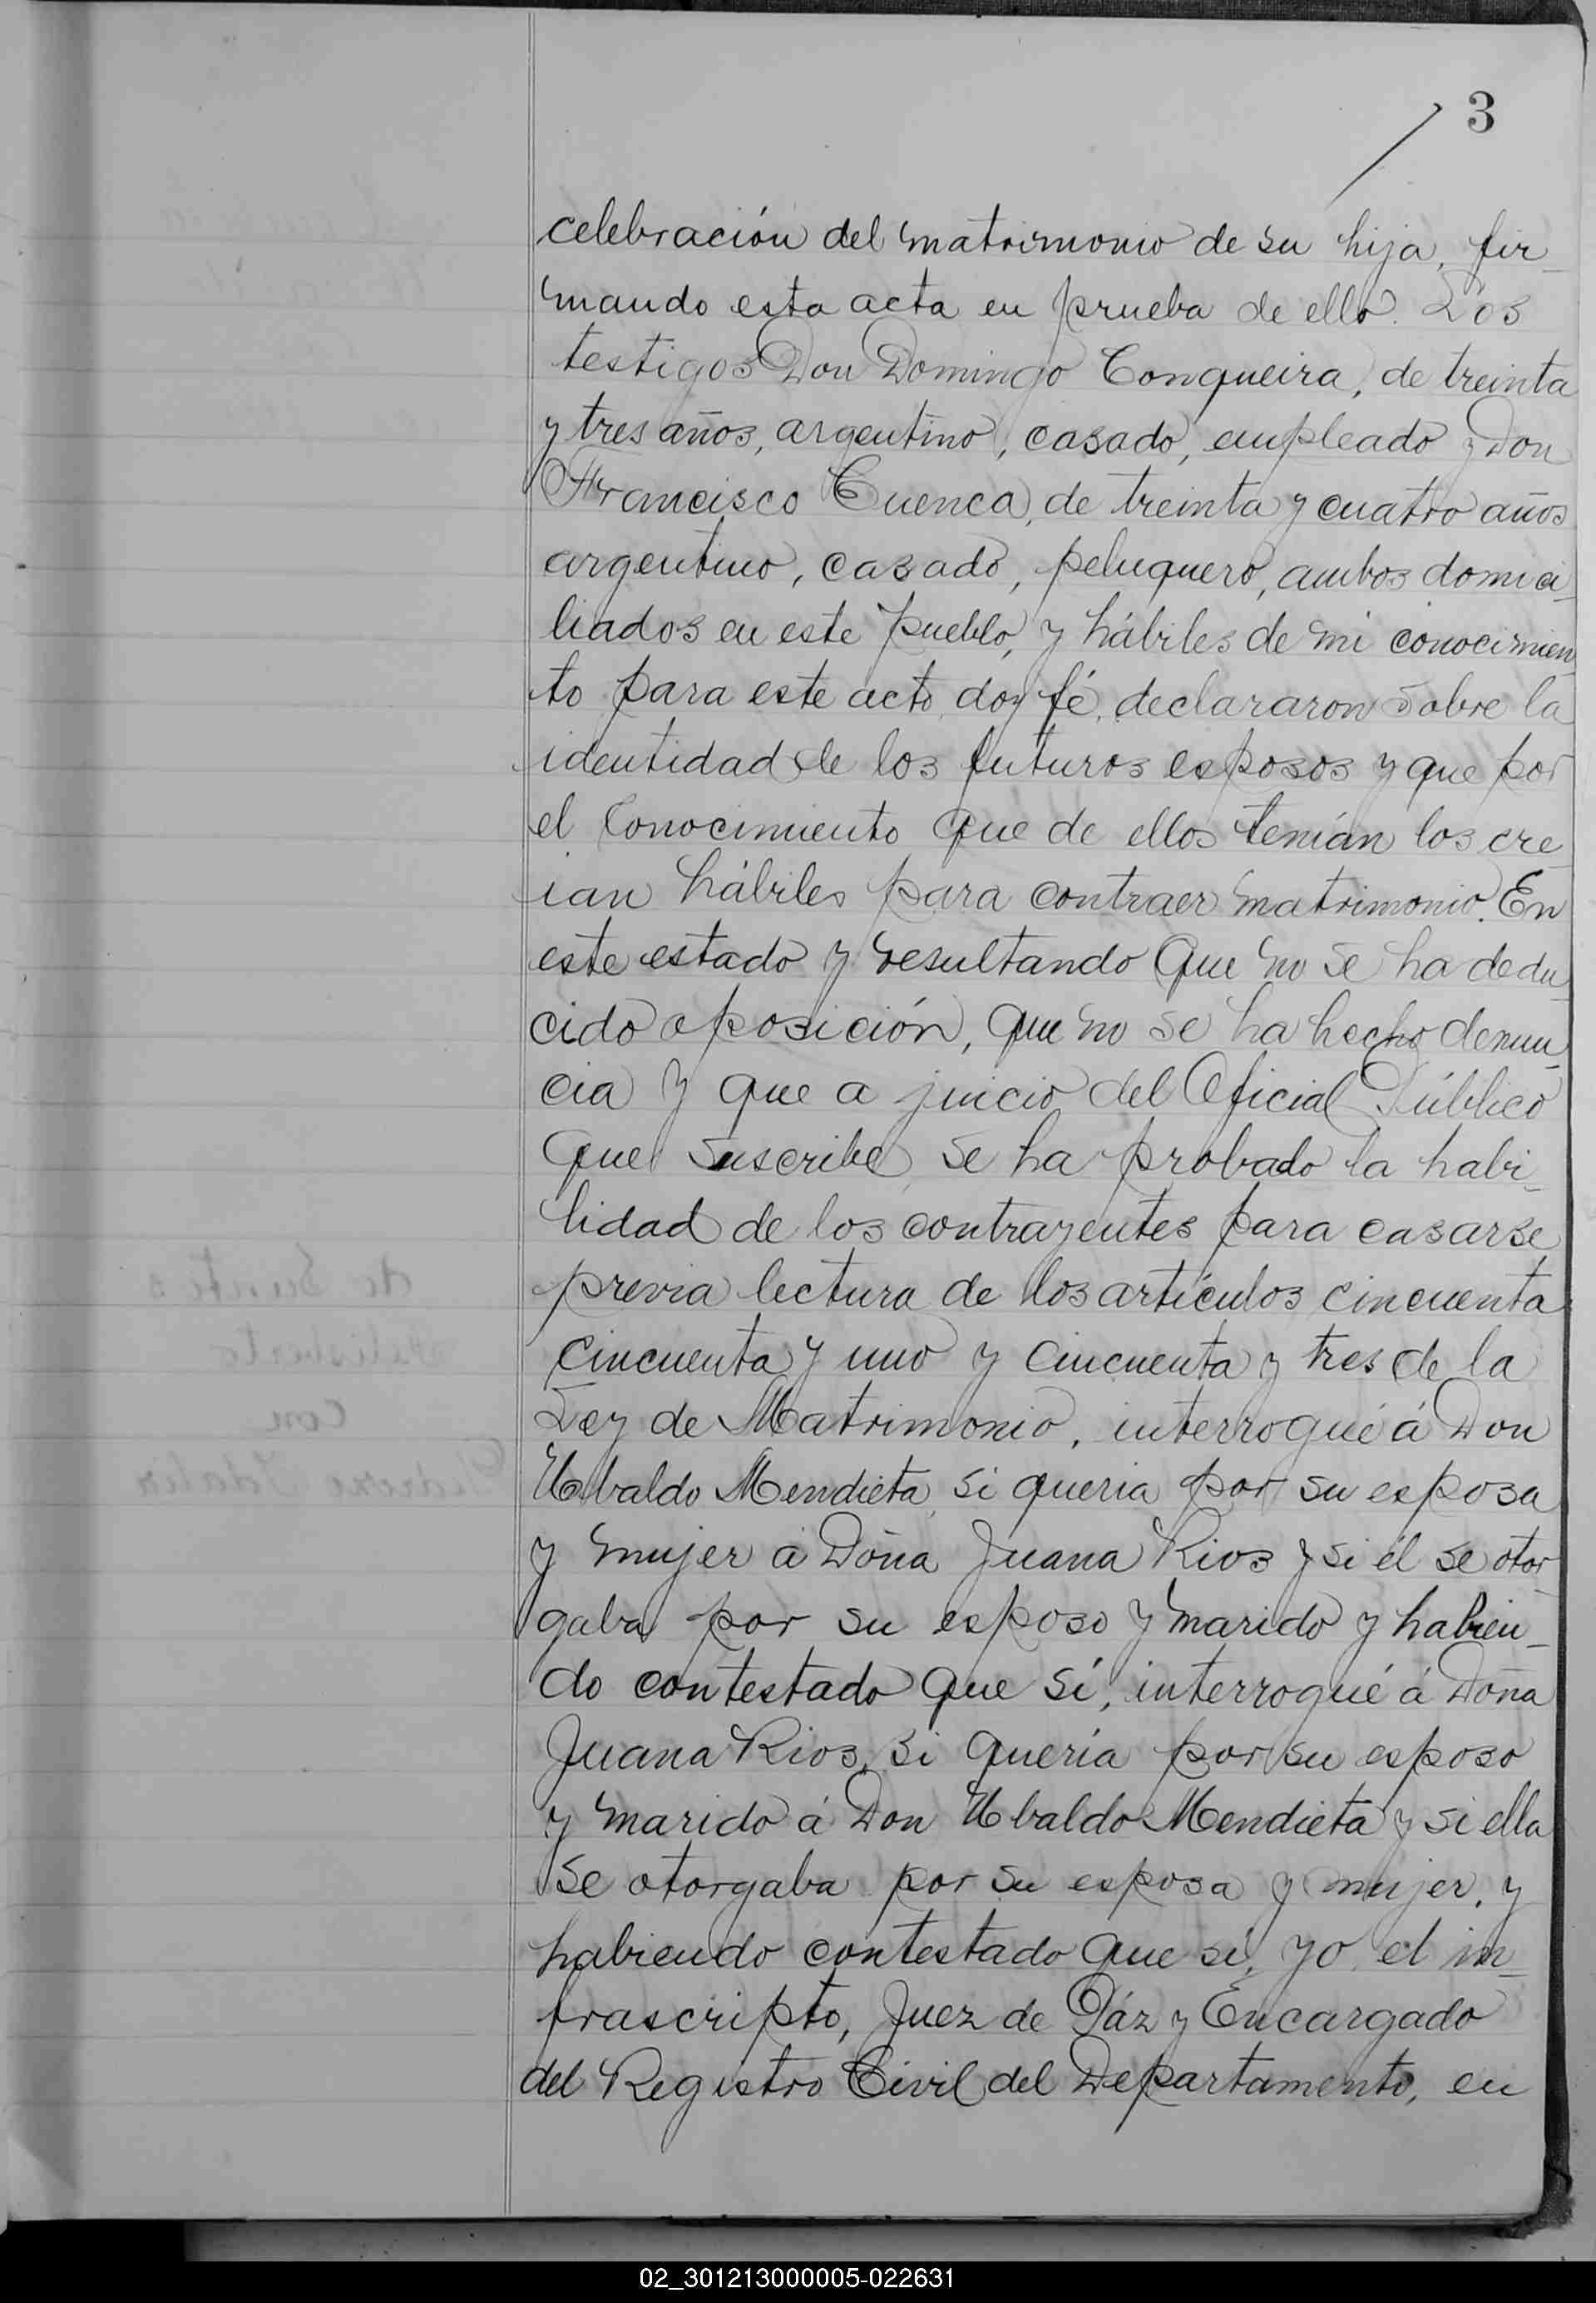 3
celebración del matrimonio de su hija, fir_
mando esta acta en prueba de ello. Los
testigos Don Domingo Conqueira, de treinta
y tres años, argentino, casado, empleado y Don
Francisco Cuenca, de treinta y cuatro años
argentino, casado, peluquero, ambos domici_
liados en este pueblo, y hábiles de mi conocimien_
to para este acto, doy fé, declararon sobre la
identidad de los futuros esposos y que por
el conocimiento que de ellos tenían los cre_
ian hábiles para contraer matrimonio. En
este estado y resultando que no se ha dedu_
cido oposición, que no se ha hecho denun_
cia y que a juicio del Oficial Público
que suscribe, se ha probado la habi_
lidad de los contrayentes para casarse
previa lectura de los artículos cincuenta
cincuenta y uno y cincuenta y tres de la
Ley de Matrimonio, interrogué á Don
Ubaldo Mendieta, si queria por su esposa
y mujer á Doña Juana Rios y si él se otor_
gaba por su esposo y marido y habien_
do contestado que sí, interrogué á Doña
Juana Rios, si quería por su esposo
y marido á Don Ubaldo Mendieta y si ella
se otorgaba por su esposa y mujer, y
habiendo contestado que sí, yo el in_
frascripto, Juez de Páz y Encargado
del Registro Civil del Departamento, en
02_301213000005-022631